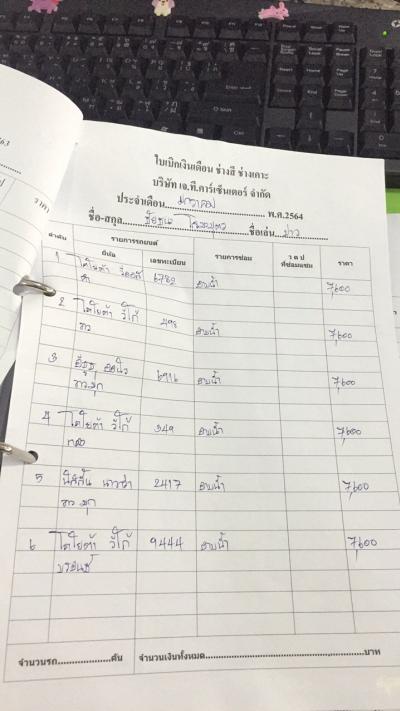 ใบเบิกเงินเดือน ช่างสี ช่างเคาะ
บริษัท เจ.ที.คาร์เซ็นเตอร์ จำกัด
ประจำเดือน....มกราคม....พ.ศ.2564
ชื่อ-สกุล........ชื่อเล่น...ขาว
ลำดับ รายการรถยนต์ รายการซ่อม ว ด ป ราคา
ยี่ห้อ เลขทะเบียน ที่ซ่อมแซม
1 โตโยต้า 6782 อาบน้ำ 7,600
ดำ
2 โตโยต้า วีโก้ 498 อาบน้ำ 7,600
ขาว
3 อีซูซุ 6916 อาบน้ำ 7,600
ขาวมุก
4 โตโยต้า วีโก้ 349 อาบน้ำ 7,600
เทา
5 นิสสัน นาวาร่า 2417 อาบน้ำ 7,600
ขาว มุก
6 โตโยต้า วีโก้ 9444 อาบน้ำ 7,600
บรอนซ์
จำนวนรถ....................คัน จำนวนเงินทั้งหมด............................................................บาท